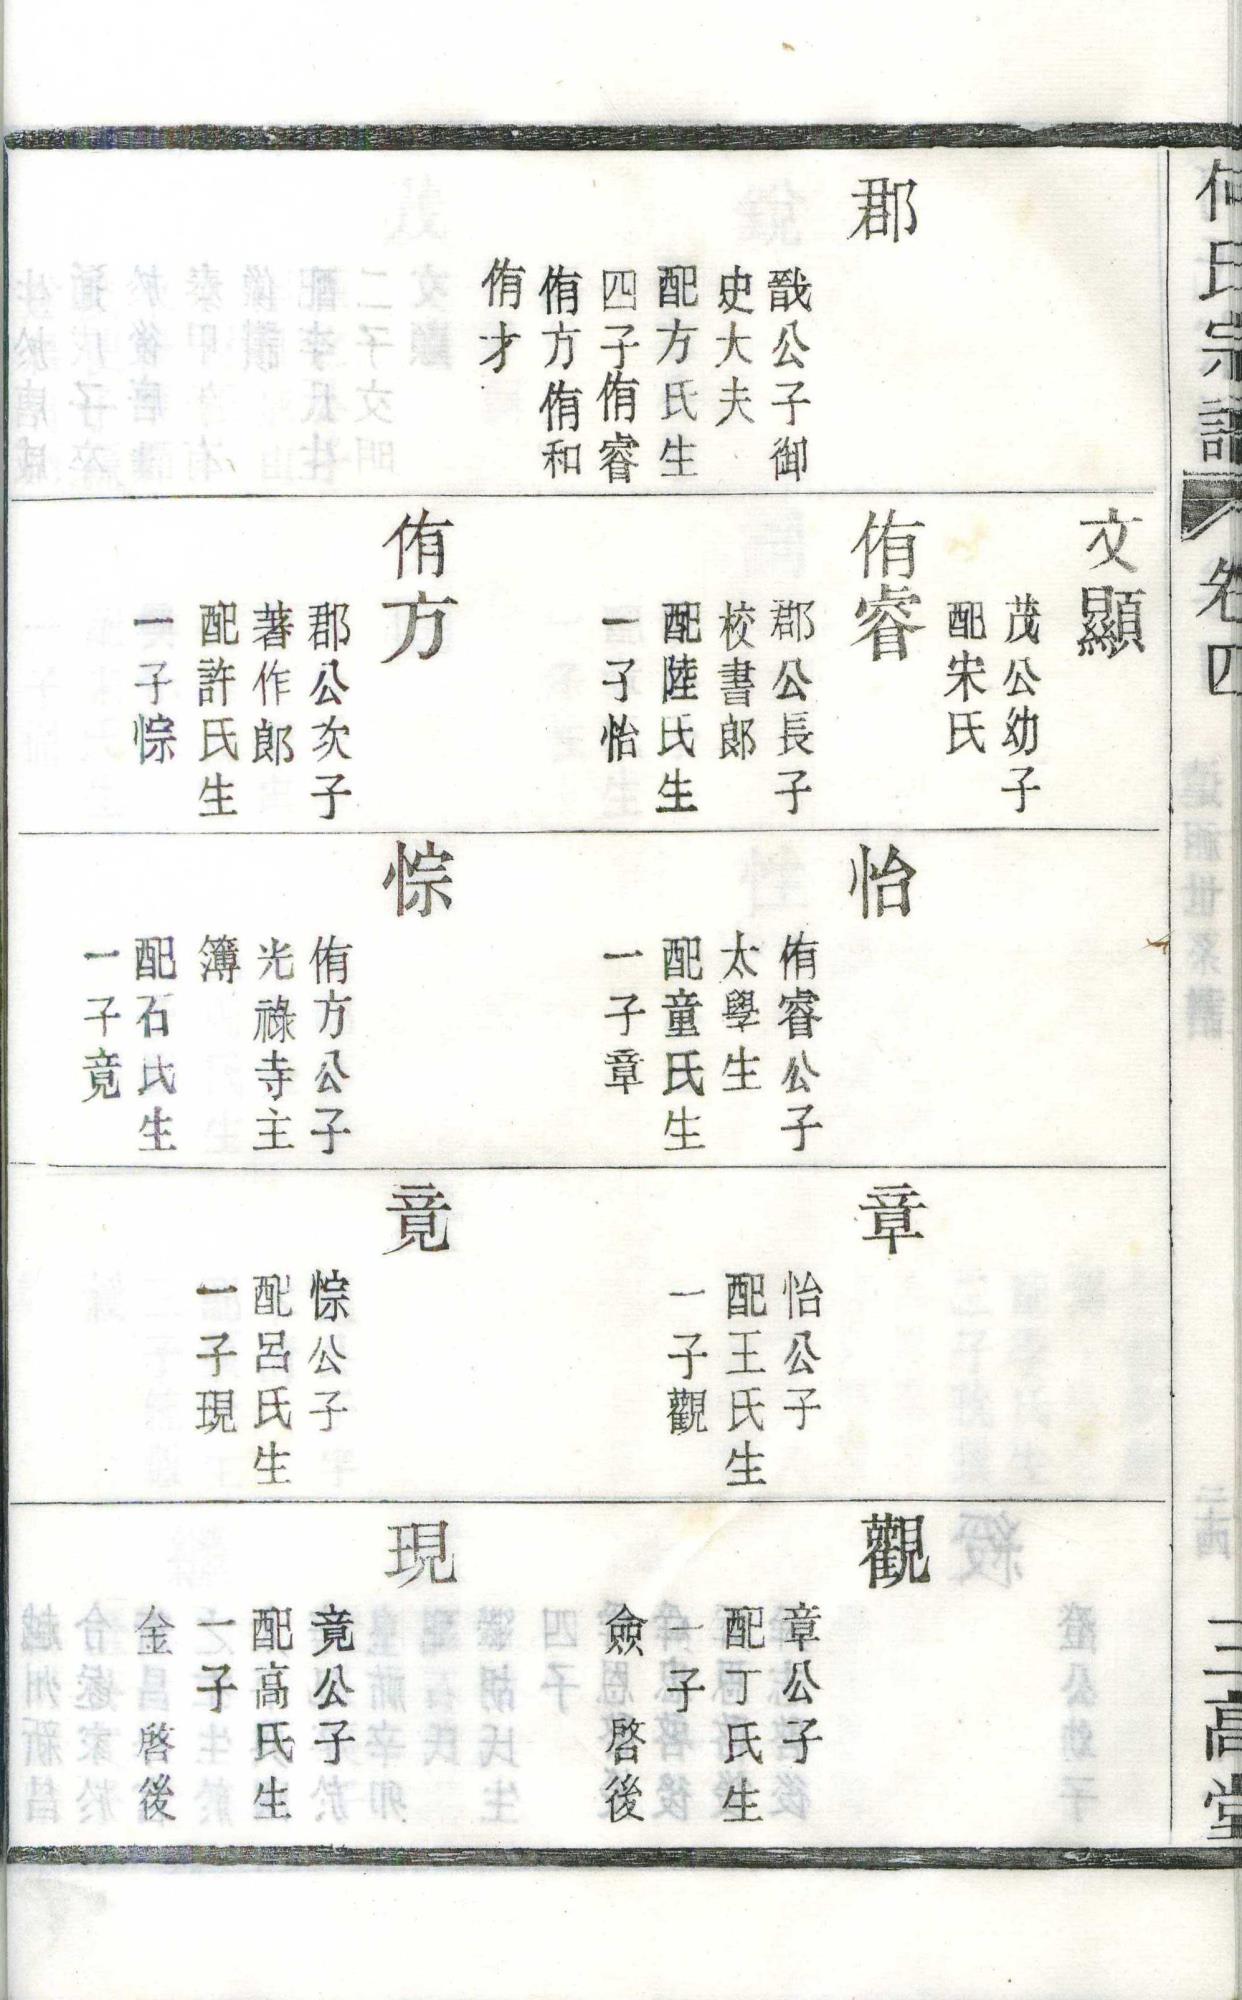 何氏宗譜
卷四
遠祖世系譜
二十四
三高堂
郡
戩公子御
史大夫
配方氏生
四子侑睿
侑方侑和
侑才
文顯
茂公幼子
配宋氏
侑睿
郡公長子
校書郎
配陸氏生
一子怡
侑方
郡公次子
著作郎
配許氏生
一子悰
怡
侑睿公子
太學生
配童氏生
一子章
悰
侑方公子
光祿寺主
簿
配石氏生
一子竟
章
怡公子
配王氏生
一子觀
竟
悰公子
配呂氏生
一子現
觀
章公子
配丁氏生
一子
僉 啓後
現
竟公子
配高氏生
一子
金 啓後